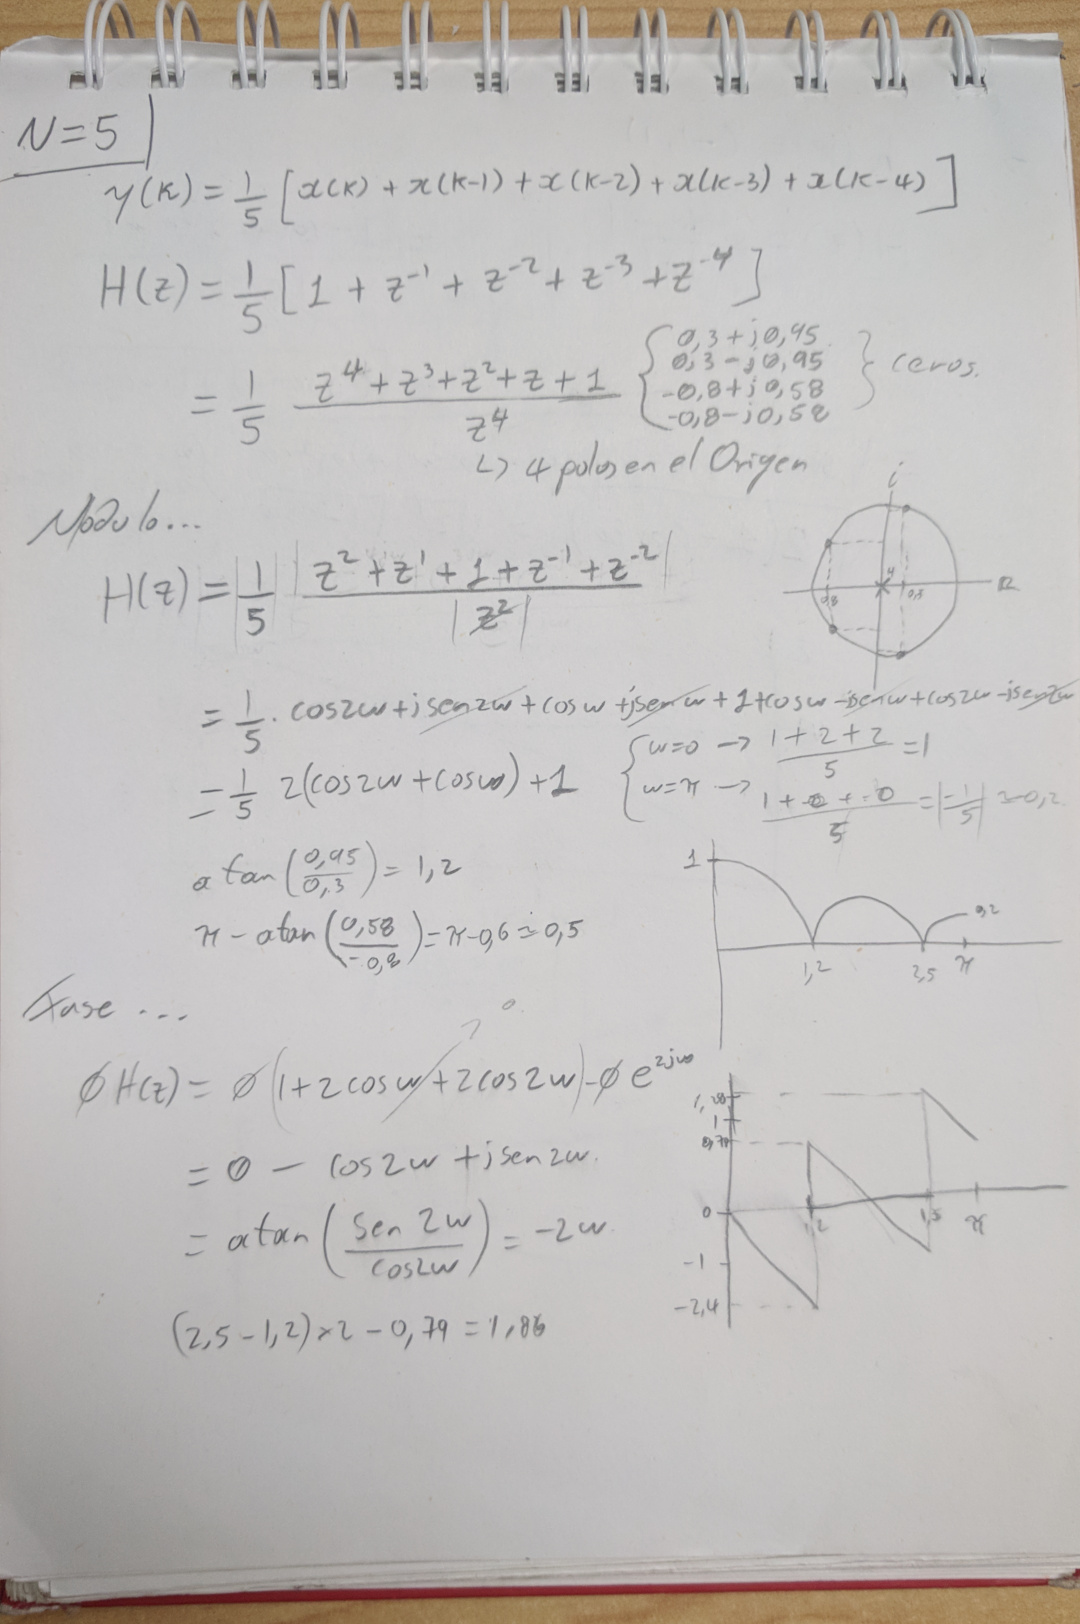 N=5
y(k) = 1/5 [x(k) + x(k-1) + x(k-2) + x(k-3) + x(k-4)]
H(z) = 1/5 [1 + z⁻¹ + z⁻² + z⁻³ + z⁻⁴]
= 1/5 (z⁴+z³+z²+z+1)/z⁴ { 0,3+j0,95
0,3-j0,95
-0,8+j0,58
-0,8-j0,58 } ceros.
↳ 4 polos en el Origen
Modulo...
i
H(z) = |1/5| |z²+z¹+1+z⁻¹+z⁻²|/|z²|
0,8 4 0,3 R
= 1/5 · cos2w+jsen2w+cosw+jsenw+1+cosw-jsenw+cos2w-jsen2w
= 1/5 2(cos2w+cosw)+1 { w=0 → (1+2+2)/5 = 1
w=π → (1+0+-0)/5 = |-1/5| = 0,2
atan(0,95/0,3) = 1,2
π - atan(0,58/-0,8) = π-0,6 = 0,5
1 0,2
1,2 2,5 π
Fase ...
0
∅ H(z) = ∅ (1+2cosw+2cos2w) - ∅ e^2jw
= 0 - cos2w + jsen2w.
= atan(sen 2w/cos2w) = -2w
(2,5-1,2)×2-0,79 = 1,86
1
0,79
0
1,2 π
-1
-2,4